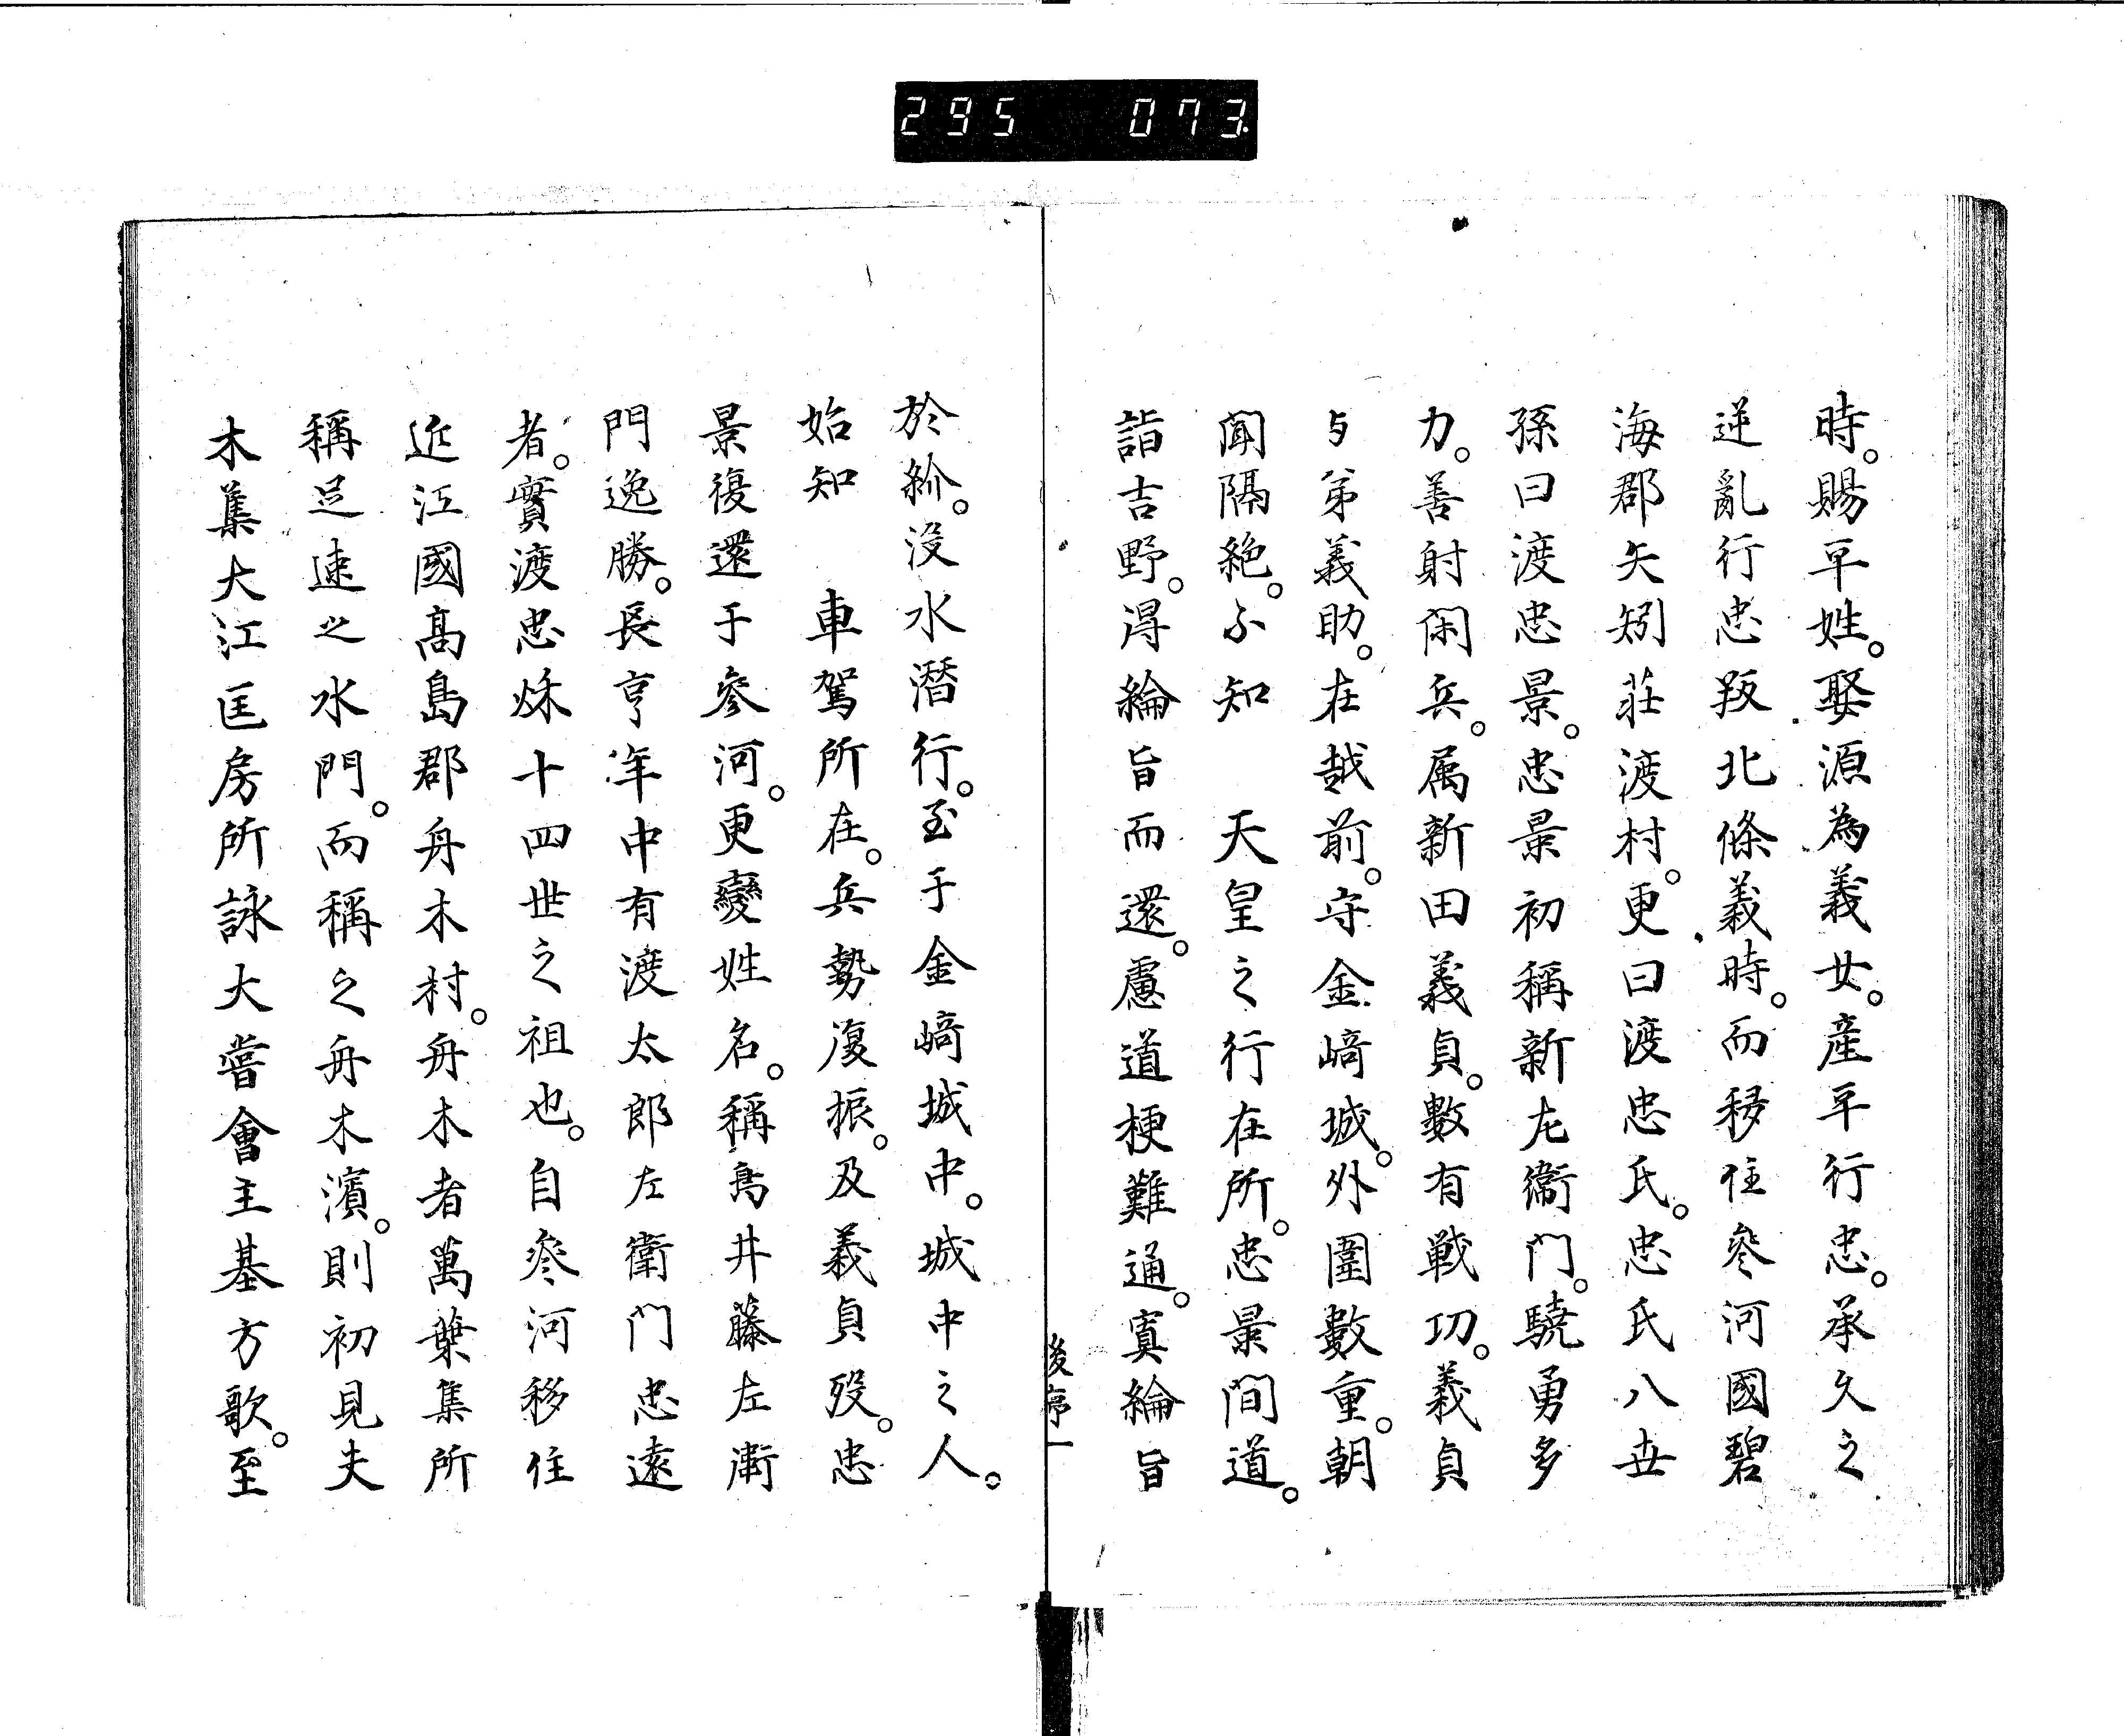 295 073.
時。賜平姓。娶源為義女。産平行忠。承久之
逆亂行忠叛北條義時。而移住參河國碧
海郡矢矧莊渡村。更曰渡忠氏。忠氏八世
孫曰渡忠景。忠景初稱新左衛門。驍勇多
力。善射閑兵。属新田義貞。數有戦功。義貞
与弟義助。在越前。守金﨑城。外圍數重。朝
聞隔絶。不知　天皇之行在所。忠景間道。
詣吉野。得綸旨而還。慮道梗難通。寘綸旨
後序一
於紒。没水潜行。至于金﨑城中。城中之人。
始知　車駕所在。兵勢復振。及義貞歿。忠
景復還于參河。更變姓名。稱鳥井藤左衛
門逸勝。長亨年中有渡太郎左衛門忠遠
者。實渡忠秌十四世之祖也。自參河移住
近江國髙島郡舟木村。舟木者萬葉集所
稱足速之水門。而稱之舟木濱。則初見夫
木集大江匡房所詠大嘗會主基方歌。至